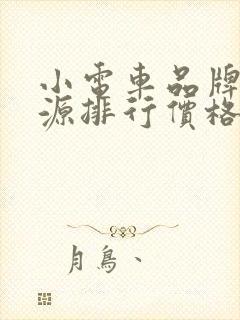 小電車品牌
源排行價格
月鳥、